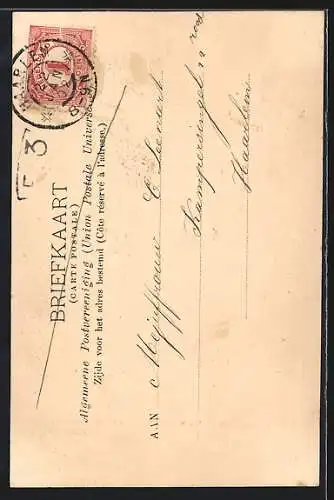 BRIEFKAART
(CARTE POSTALE)
Algemeene Postvereeniging (Union Postale Universelle)
Zijde voor het adres bestemd (Côté réservé à l'adresse.)
AAN Mejuffrouw C.
Kampersingel 22 rood
Haarlem
3
HAARLEM
1